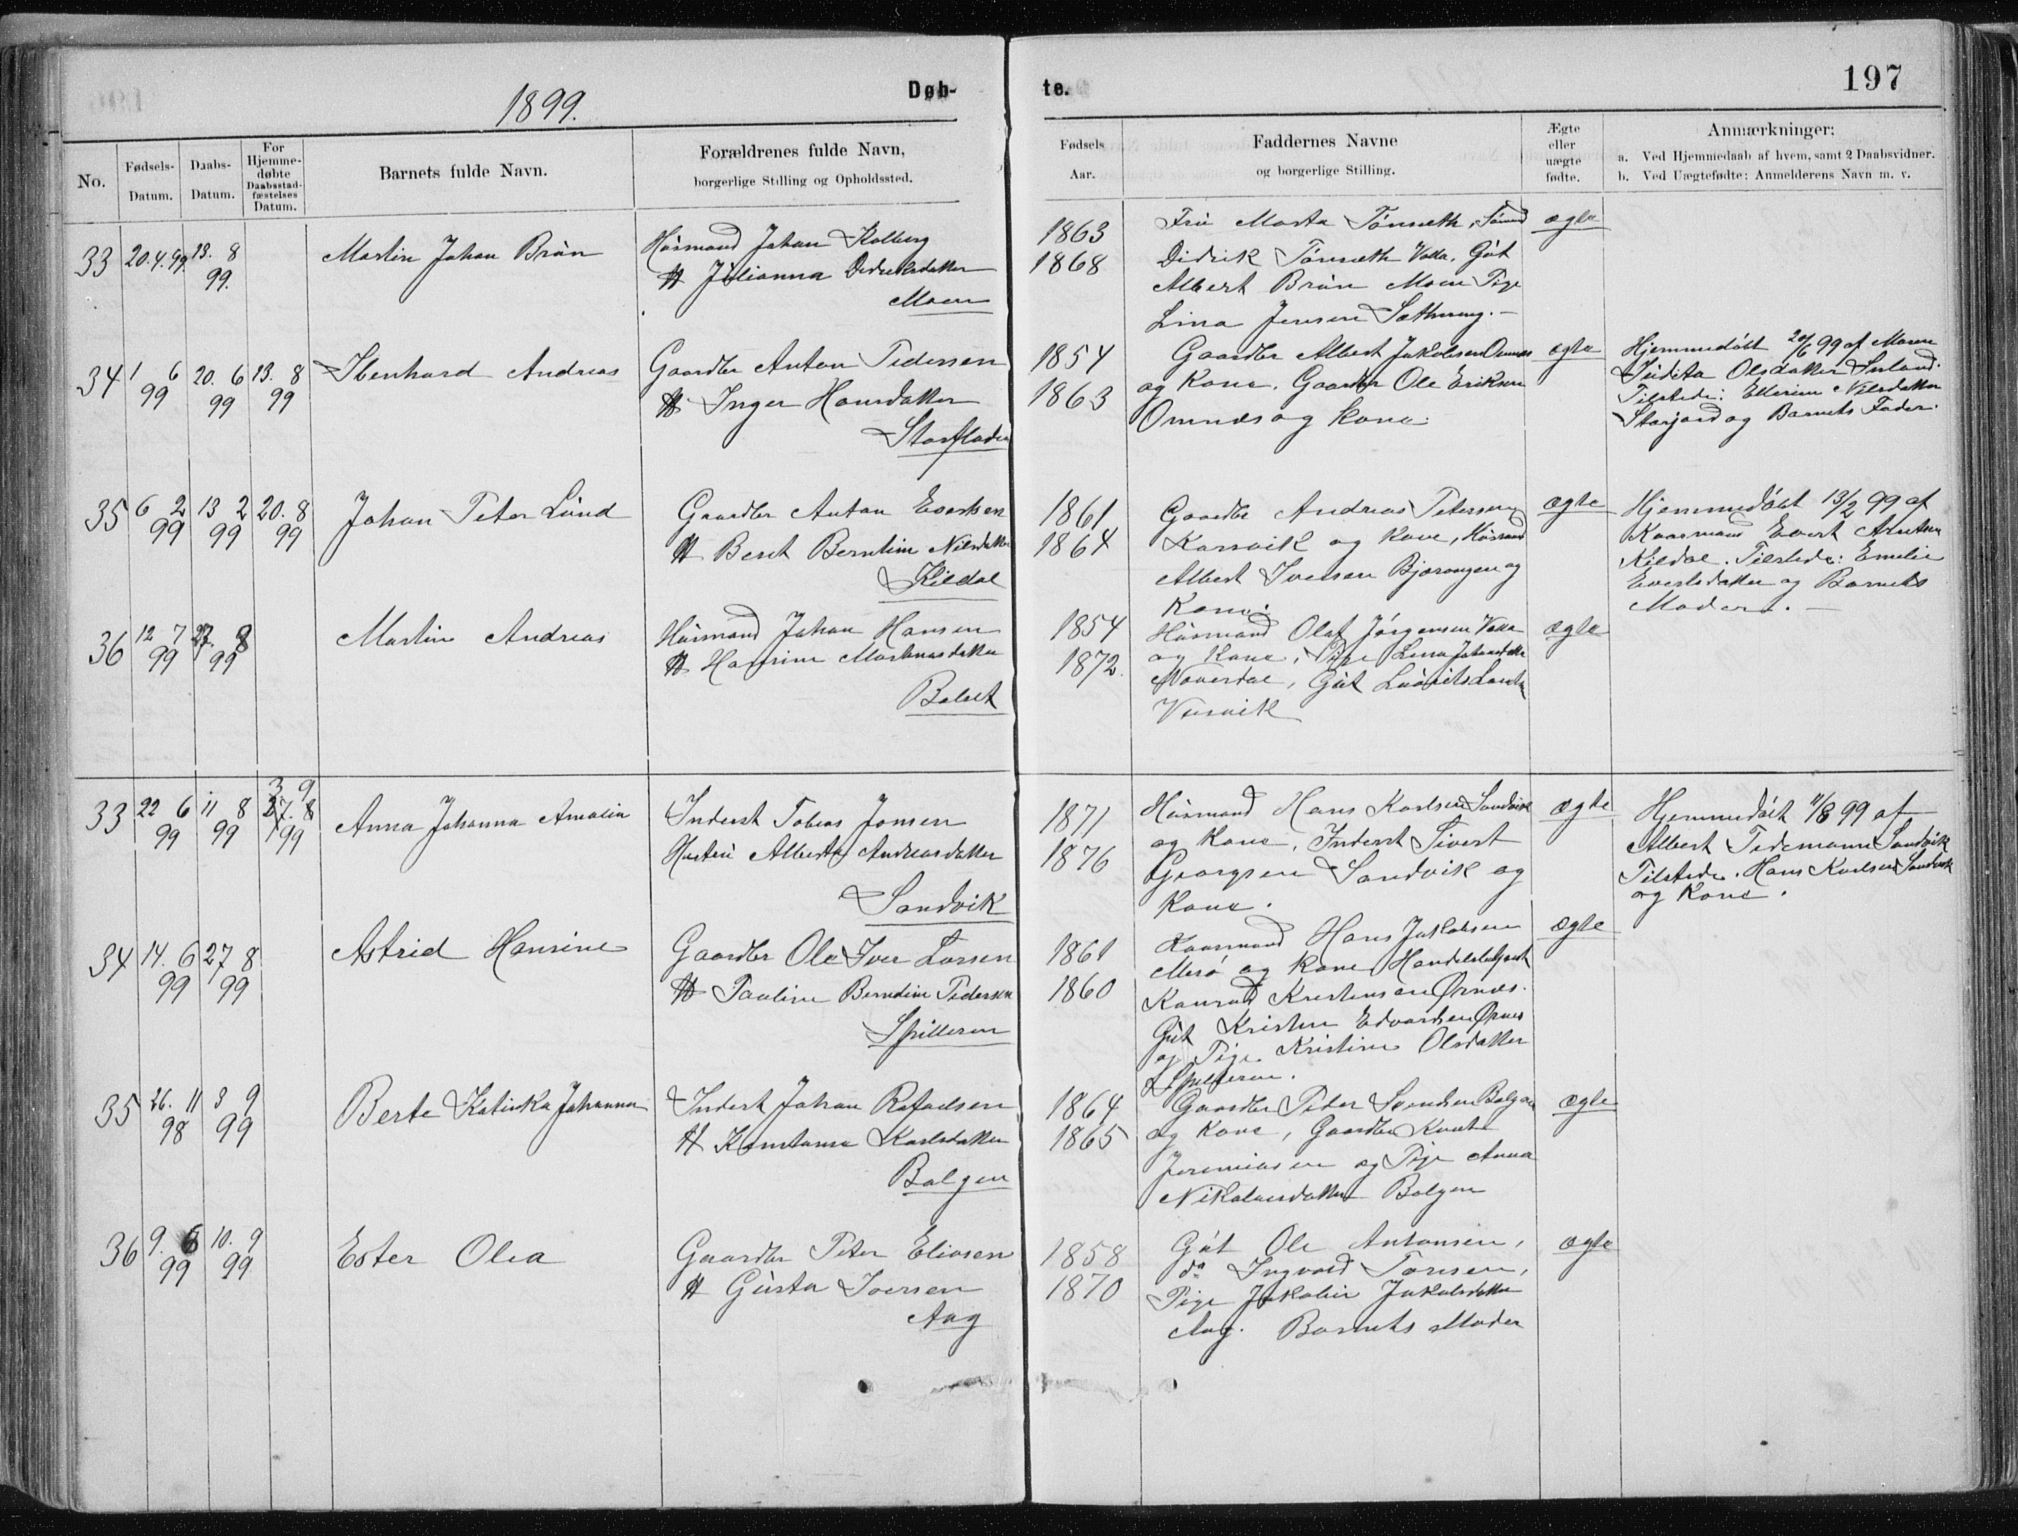 1899.
Døb-
te.
197
No.
Fødsels-
Datum.
Daabs-
Datum.
For
Hjemme-
døbte
Daabsstad-
fæstelses
Datum.
Barnets fulde Navn.
Forældrenes fulde Navn,
borgerlige Stilling og Opholdssted.
Fødsels
Aar.
Faddernes Navne
og borgerlige Stilling.
Ægte
eller
uægte
fødte.
Anmærkninger:
a. Ved Hjemmedaab af hvem, samt 2 Daabsvidner.
b. Ved Uægtefødte: Anmelderens Navn m. v.
33
20.4.99.
13. 8
99.
Martin Johan Brun
Husmand Johan Kolberg
H Julianna Didriksdatter
Moen
1863
1868
Fru Marta Tønseth,
Didrik Tønseth Valla. Gut
Albert Brun Moen Pige
Lina Jensen Sæthereng.
ægte
34
1 6
99
20. 6
99
13. 8
99
Ibenhard Andreas
Gaardbr Anton Pedersen
H Inger Hansdatter
Storfladen
1854
1863
Gaardbr Albert Jakobsen Omnæs
og Kone. Gaardbr Ole Eriksen
Omnæs og Kone.
ægte
Hjemmedøbt 20/6 99 af Maren
Judita Olsdatter
Tilstede: Nilsdatter
Storjord og Barnets Fader.
35
6 2
99
13 2
99
20. 8
99
Johan Peter Lund
Gaardbr Anton Evertsen
H Berit Berntine Nilsdatter
Kildal
1861
1864
Gaardbr Andreas Petersen
og Kone, Husmand
Albert Iversen Bjerangen og
Kone.
ægte
Hjemmedøbt 13/2 99 af
Kaarmand Evert Arntsen
Kildal. Tilstede: Emelie
Evertsdatter og Barnets
Moder.
36
12 7
99
27 8
99
Martin Andreas
Husmand Johan Hansen
H Hansine Martinusdatter
1854
1872.
Husmand Olaf Jørgensen Valla
og Kone, Pige Lina
Gut Laurits
ægte
33
22 6
99
11 8
99
3 9
27. 8
99
Anna Johanna Amalia
Inderst Tobias Jonsen
Hustru Alberta Andreasdatter
Sandvik
1871
1876
Husmand Hans Karlsen Sandvik
og Kone, Inderst Sivert
Georgsen Sandvik og
Kone.
ægte
Hjemmedøbt 11/8 99 af
Albert Tidemann Sandvik
Tilstede. Hans Karlsen Sandvik
og Kone.
34
14. 6
99
27 8
99
Astrid Hansine
Gaardbr Ole Iver Larsen
H Pauline Berndine Pedersen
Spilleren
1861
1860
Kaarmand Hans Jakobsen
Mesø og Kone, Handelsbetjent
Konrad Kristensen Ørnes.
Gut Kristen Edvardsen Ørnes
og Pige Kristine Olsdatter
Spilleren.
ægte
35
26. 11
98
3 9
99
Berte Katinka Johanna
Inderst Johan Rafaelsen
H Konstanse Karlsdatter
Bolgen
1864
1865
Gaardbr Peder Svendsen Bolgen
og Kone, Gaardbr
Jeremiasen og Pige Anna
Nikolaisdatter Bolgen
ægte
36
9. 6
99
10. 9
99
Ester Olea
Gaardbr Peter Eliasen
H Gusta Iversen
Aag
1858
1870
Gut Ole Antonsen,
do Ingvald Tonsen,
Pige Jakobine Jakobsdatter
Aag. Barnets Moder
ægte